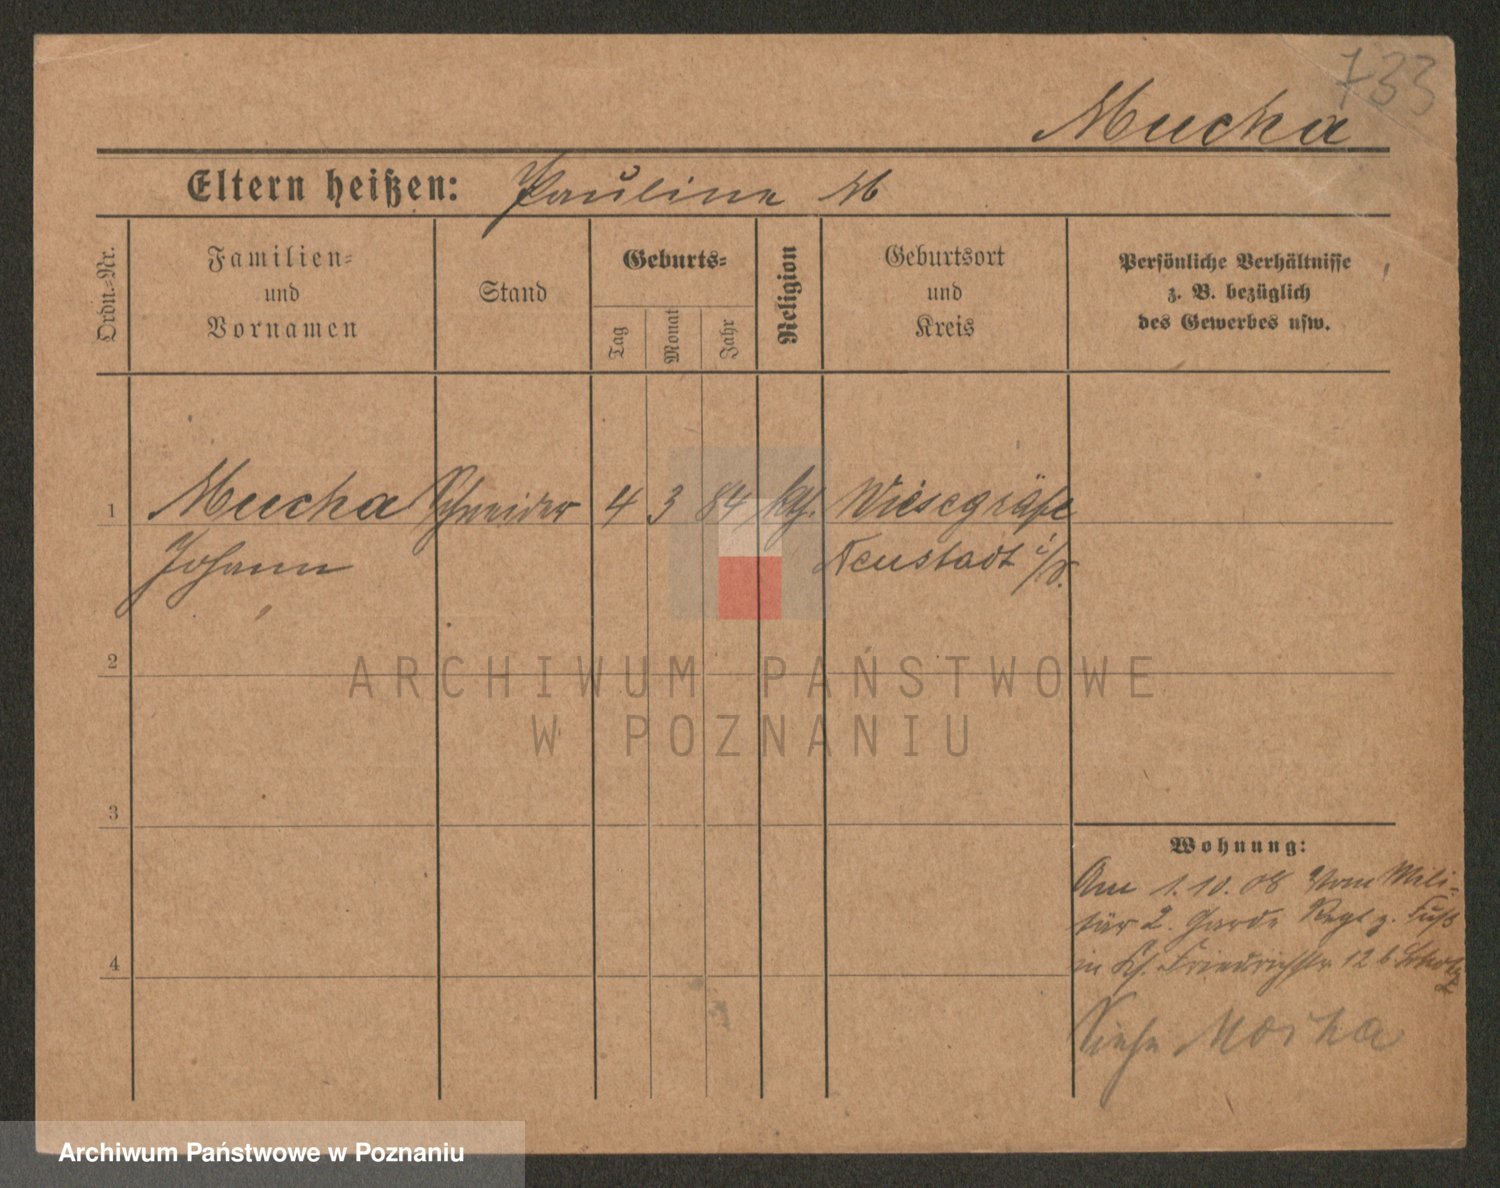 733
Mucha
Eltern heißen: Pauline M
Ordn.-Nr.
Familien-
und
Vornamen
Stand
Geburts-
Tag
Monat
Jahr
Religion
Geburtsort
und
Kreis
Persönliche Verhältnisse
z. B. bezüglich
des Gewerbes usw.
1
Mucha Schneider 4 3 84 kth. Wiesegräfe
Johann Neustadt i/S.
2
3
4
Wohnung:
Am 1.10.08 vom Mili-
tär 2. Garde Regt z. Fuß
in Friedrichstr 12 b
Siehe
ARCHIWUM PAŃSTWOWE
W POZNANIU
Archiwum Państwowe w Poznaniu